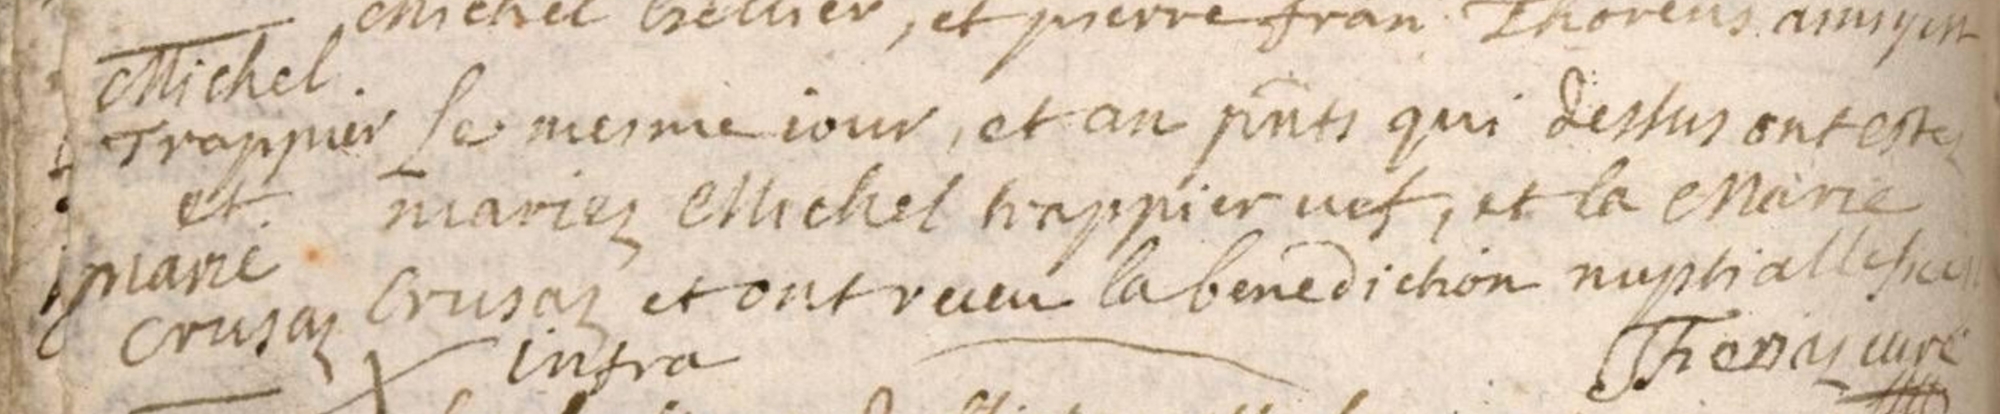 Michel trellier, et pierre fran Thorens
Michel
Trappier
et
marie
Crusaz
Le mesme iour, et an pnts qui dessus ont estez
mariez Michel trappier uef, et la Marie
Crusaz et ont receu la benediction nuptialle
infra
curé